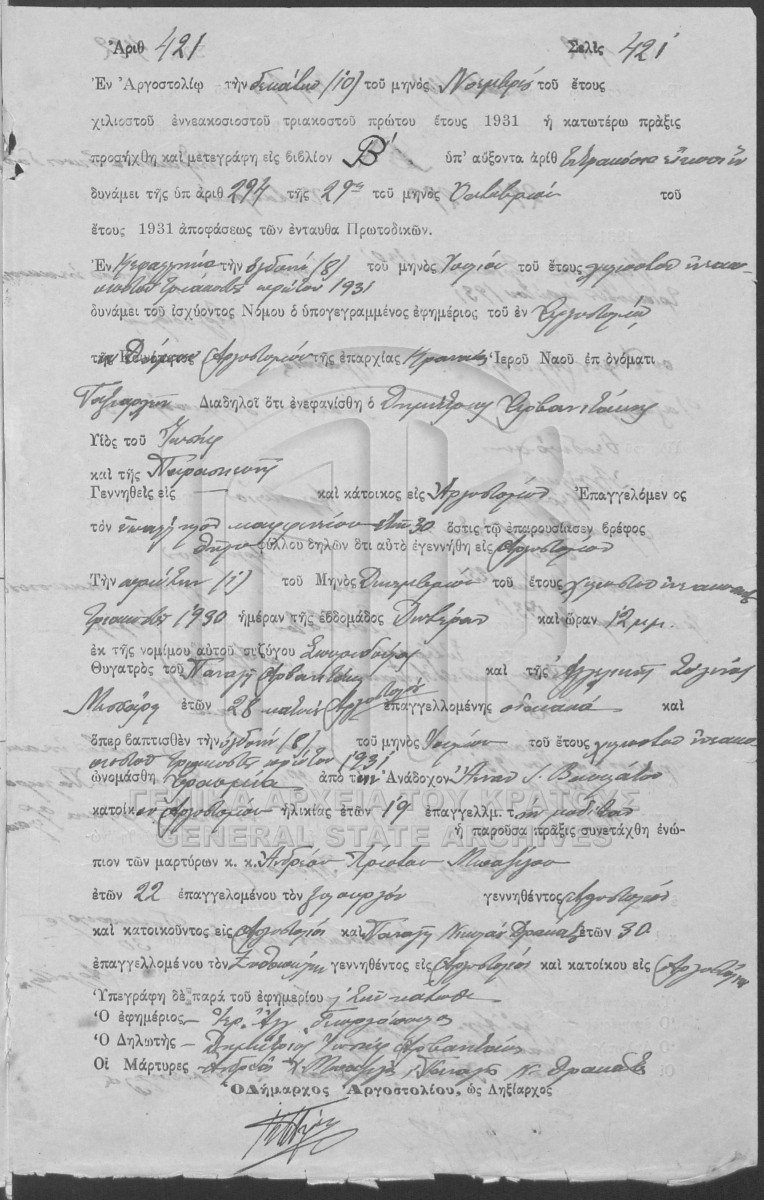 Ἀριθ 421 Σελὶς 421
Ἐν Ἀργοστολίῳ τὴν δεκάτην (10) τοῦ μηνὸς Νοεμβρίου τοῦ ἔτους
χιλιοστοῦ ἐννεακοσιοστοῦ τριακοστοῦ πρώτου ἔτους 1931 ἡ κατωτέρω πρᾶξις
προσήχθη καὶ μετεγράφη εἰς βιβλίον Β΄. ὑπ' αὔξοντα ἀριθ τετρακόσια εἴκοσι ἓν
δυνάμει τῆς ὑπ ἀριθ 294 τῆς 29ης τοῦ μηνὸς Ὀκτωβρίου τοῦ
ἔτους 1931 ἀποφάσεως τῶν ἐνταυθα Πρωτοδικῶν.
Ἐν Κεφαλληνίᾳ τὴν ὀγδόην (8) τοῦ μηνὸς τοῦ ἔτους χιλιοστοῦ ἐννεακο-
σιοστοῦ τριακοστοῦ πρώτου 1931
δυνάμει τοῦ ἰσχύοντος Νόμου ὁ ὑπογεγραμμένος ἐφημέριος τοῦ ἐν Ἀργοστολίῳ
Ἀργοστολίου τῆς ἐπαρχίας Κραναίας Ἱεροῦ Ναοῦ ἐπ ὀνόματι
Ταξιάρχη Διαδηλοῖ ὅτι ἐνεφανίσθη ὁ Δημήτριος Ἀρβανιτάκης
Υἱὸς τοῦ Ἰωσὴφ
καὶ τῆς Παρασκευῆς
Γεννηθεὶς εἰς — καὶ κάτοικος εἰς Ἀργοστόλιον Ἐπαγγελόμεν ος
τὸν ἐτῶν 30 ὅστις τῷ ἐπαρουσίασεν βρέφος
θήλεος φύλλου δηλῶν ὅτι αὐτὸ ἐγεννήθη εἰς Ἀργοστόλιον
Τὴν πρώτην (1) τοῦ Μηνὸς Δεκεμβρίου τοῦ ἔτους χιλιοστοῦ ἐννεακοσιοστοῦ
τριακοστοῦ 1930 ἡμέραν τῆς ἑβδομάδος Δευτέραν καὶ ὥραν 12 μμ.
ἐκ τῆς νομίμου αὐτοῦ συζύγου Σπυριδούλας
Θυγατρὸς τοῦ Παναγῆ Ἀρβανιτάκη καὶ τῆς Ἀγγελικῆς
ἐτῶν 28 κατοίκ Ἀργοστολίου ἐπαγγελλομένης οἰκιακὰ καὶ
ὅπερ βαπτισθὲν τὴν ὀγδόην (8) τοῦ μηνὸς τοῦ ἔτους χιλιοστοῦ ἐννεακο-
σιοστοῦ τριακοστοῦ πρώτου 1931
ὠνομάσθη Ἐρασμία ἀπὸ τὴν Ἀνάδοχον Ἄνναν
κατοίκου Ἀργοστολίου ἡλικίας ἐτῶν 19 ἐπαγγελλμ. τὴν μοδίστραν
ἡ παροῦσα πρᾶξις συνετάχθη ἐνώ-
πιον τῶν μαρτύρων κ. κ. Ἀνδρέου Χρίστου
ἐτῶν 22 ἐπαγγελομένου τὸν ξυλουργὸν γεννηθέντος Ἀργοστόλιον
καὶ κατοικοῦντος εἰς Ἀργοστόλιον καὶ Παναγῆ Νικολάου Δρακάτου ἐτῶν 30
ἐπαγγελλομένου τὸν γεννηθέντος εἰς Ἀργοστόλιον καὶ κατοίκου εἰς Ἀργοστόλιον
Ὑπεγράφη δὲ παρὰ τοῦ ἐφημερίου
Ὁ ἐφημέριος – Ἱερ. Ἀγγ. Γεωργόπουλος
Ὁ Δηλωτὴς – Δημήτριος Ἰωσὴφ Ἀρβανιτάκης
Οἱ Μάρτυρες Ἀνδρέας Παναγῆς Ν. Δρακάτος
Ὁ Δήμαρχος Ἀργοστολίου, ὡς Ληξίαρχος
ΓΕΝΙΚΑ ΑΡΧΕΙΑ ΤΟΥ ΚΡΑΤΟΥΣ
GENERAL STATE ARCHIVES